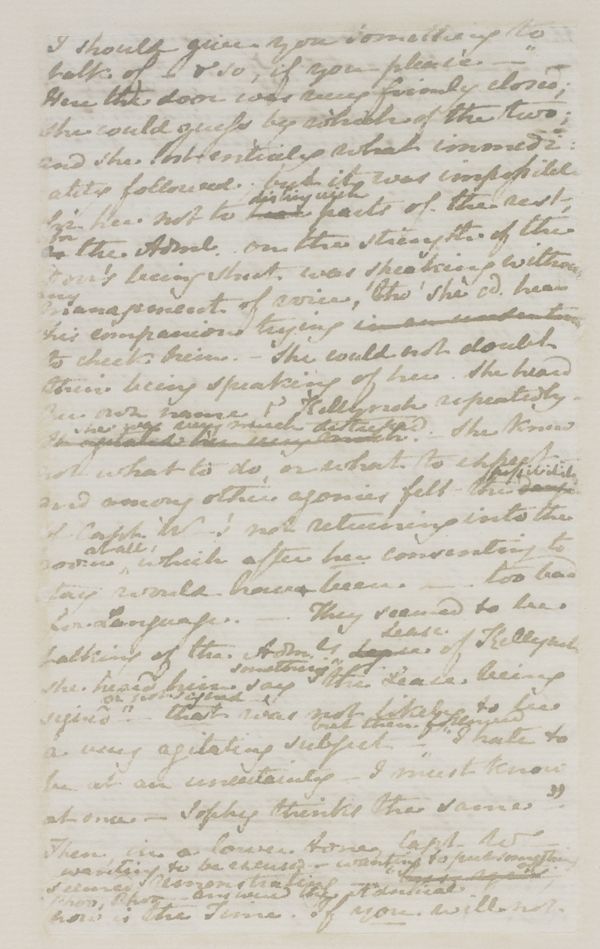 I should give you something to
talk of - & so, if you please -"
Here the door was very firmly closed;
she could guess by which of the two;
and she lost entirely what immedi:
:ately followed; but it was impossible
distinguish
for her not to hear parts of the rest,
for
the Adml. on the strength of the
Door's being shut was speaking without
any
management of voice, tho' she cd. hear
his companion trying in an undertone
to check him. - She could not doubt
their being speaking of her. She heard
her own name & Kellynch repeatedly -
she was very much disturbed
agitated her very much. She knew
not what to do, or what to expect
possibility
and among other agonies felt the
of Capt. W-'s not returning into the
at all
room, which after her consenting to
stay would have been - too bad
for Language. - They seemed to be
Lease
talking of the Adm's of Kellynch
something
she heard him say "the Lease being
or not signed
signed" - that was not likely to be
but then followed
a very agitating subject - "I hate to
be at an uncertainty - I must know
at once - Sophy thinks the same".
Then in a lower tone, Capt. W-
wanting to be excused - wanting to put something
seemed remonstrating
answered the Admiral
now is the Time. If you will not